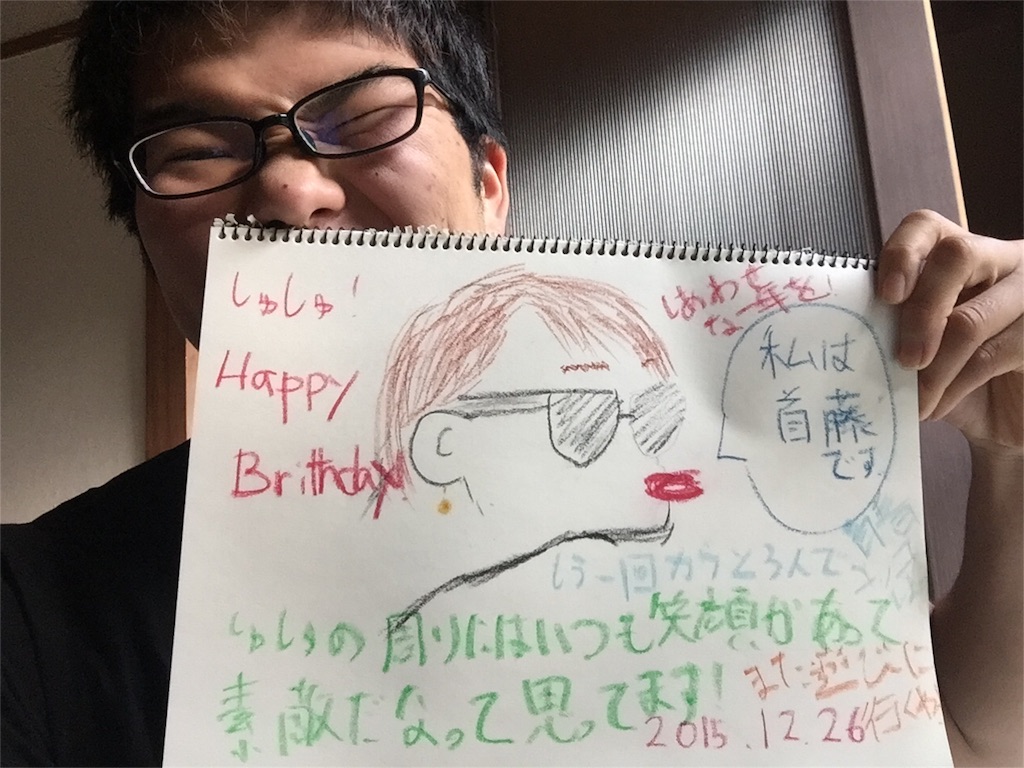 しゅしゅ!
Happy
Brithday!
しあわ
私は
首藤
です
しゅしゅの周りにはいつも笑顔があって
素敵だなって思ってます!
また遊びに
行くわ
2015.12.26